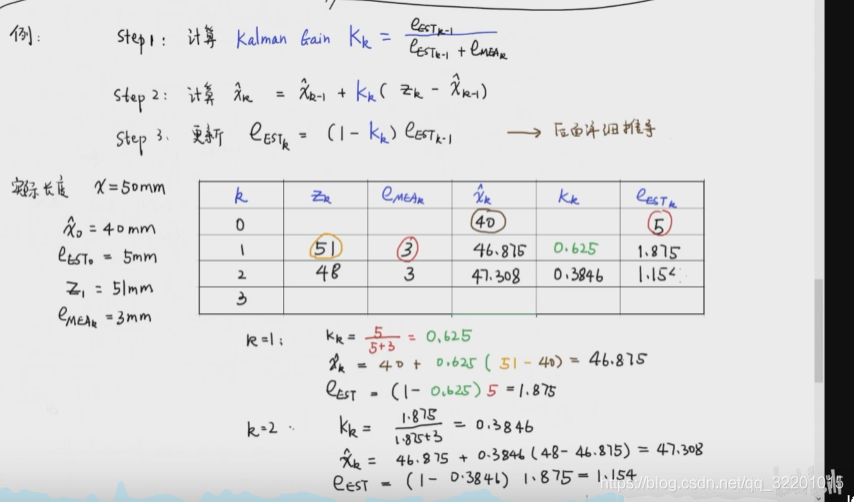 例:
Step1: 计算 Kalman Gain Kₖ = e_ESTₖ₋₁ / (e_ESTₖ₋₁ + e_MEAₖ)
Step 2: 计算 x̂ₖ = x̂ₖ₋₁ + kₖ( zₖ - x̂ₖ₋₁)
Step 3. 更新 e_ESTₖ = (1- kₖ) e_ESTₖ₋₁ → 后面详细推导
实际长度 x=50mm
x̂₀ = 40mm
e_EST₀ = 5mm
z₁ = 51mm
e_MEAₖ = 3mm
k zₖ e_MEAₖ x̂ₖ kₖ e_ESTₖ
0 40 5
1 51 3 46.875 0.625 1.875
2 48 3 47.308 0.3846 1.154
3
k=1: kₖ = 5 / (5+3) = 0.625
x̂ₖ = 40 + 0.625 ( 51 - 40) = 46.875
e_EST = (1- 0.625) 5 = 1.875
k=2: kₖ = 1.875 / (1.875+3) = 0.3846
x̂ₖ = 46.875 + 0.3846 (48- 46.875) = 47.308
e_EST = (1- 0.3846) 1.875 = 1.154